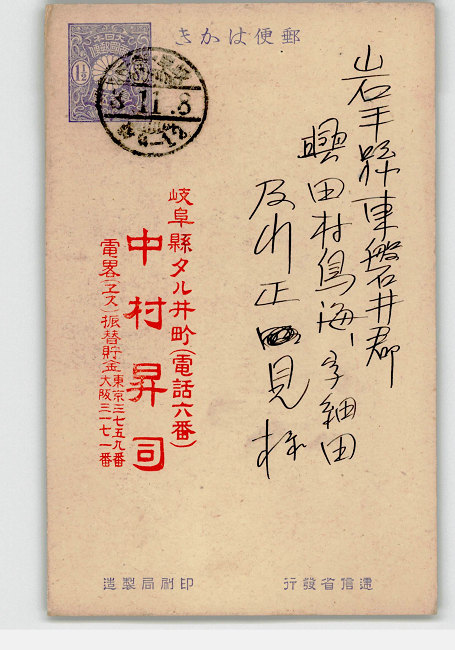 郵便はかき
1½
3.11.8
岩手縣東磐井郡
興田村鳥海字細田
及川正見様
岐阜縣タル井町(電話六番)
中村昇司
電畧(ヱス)振替貯金東京三七五九番
大阪三一七一番
印刷局製造
逓信省發行